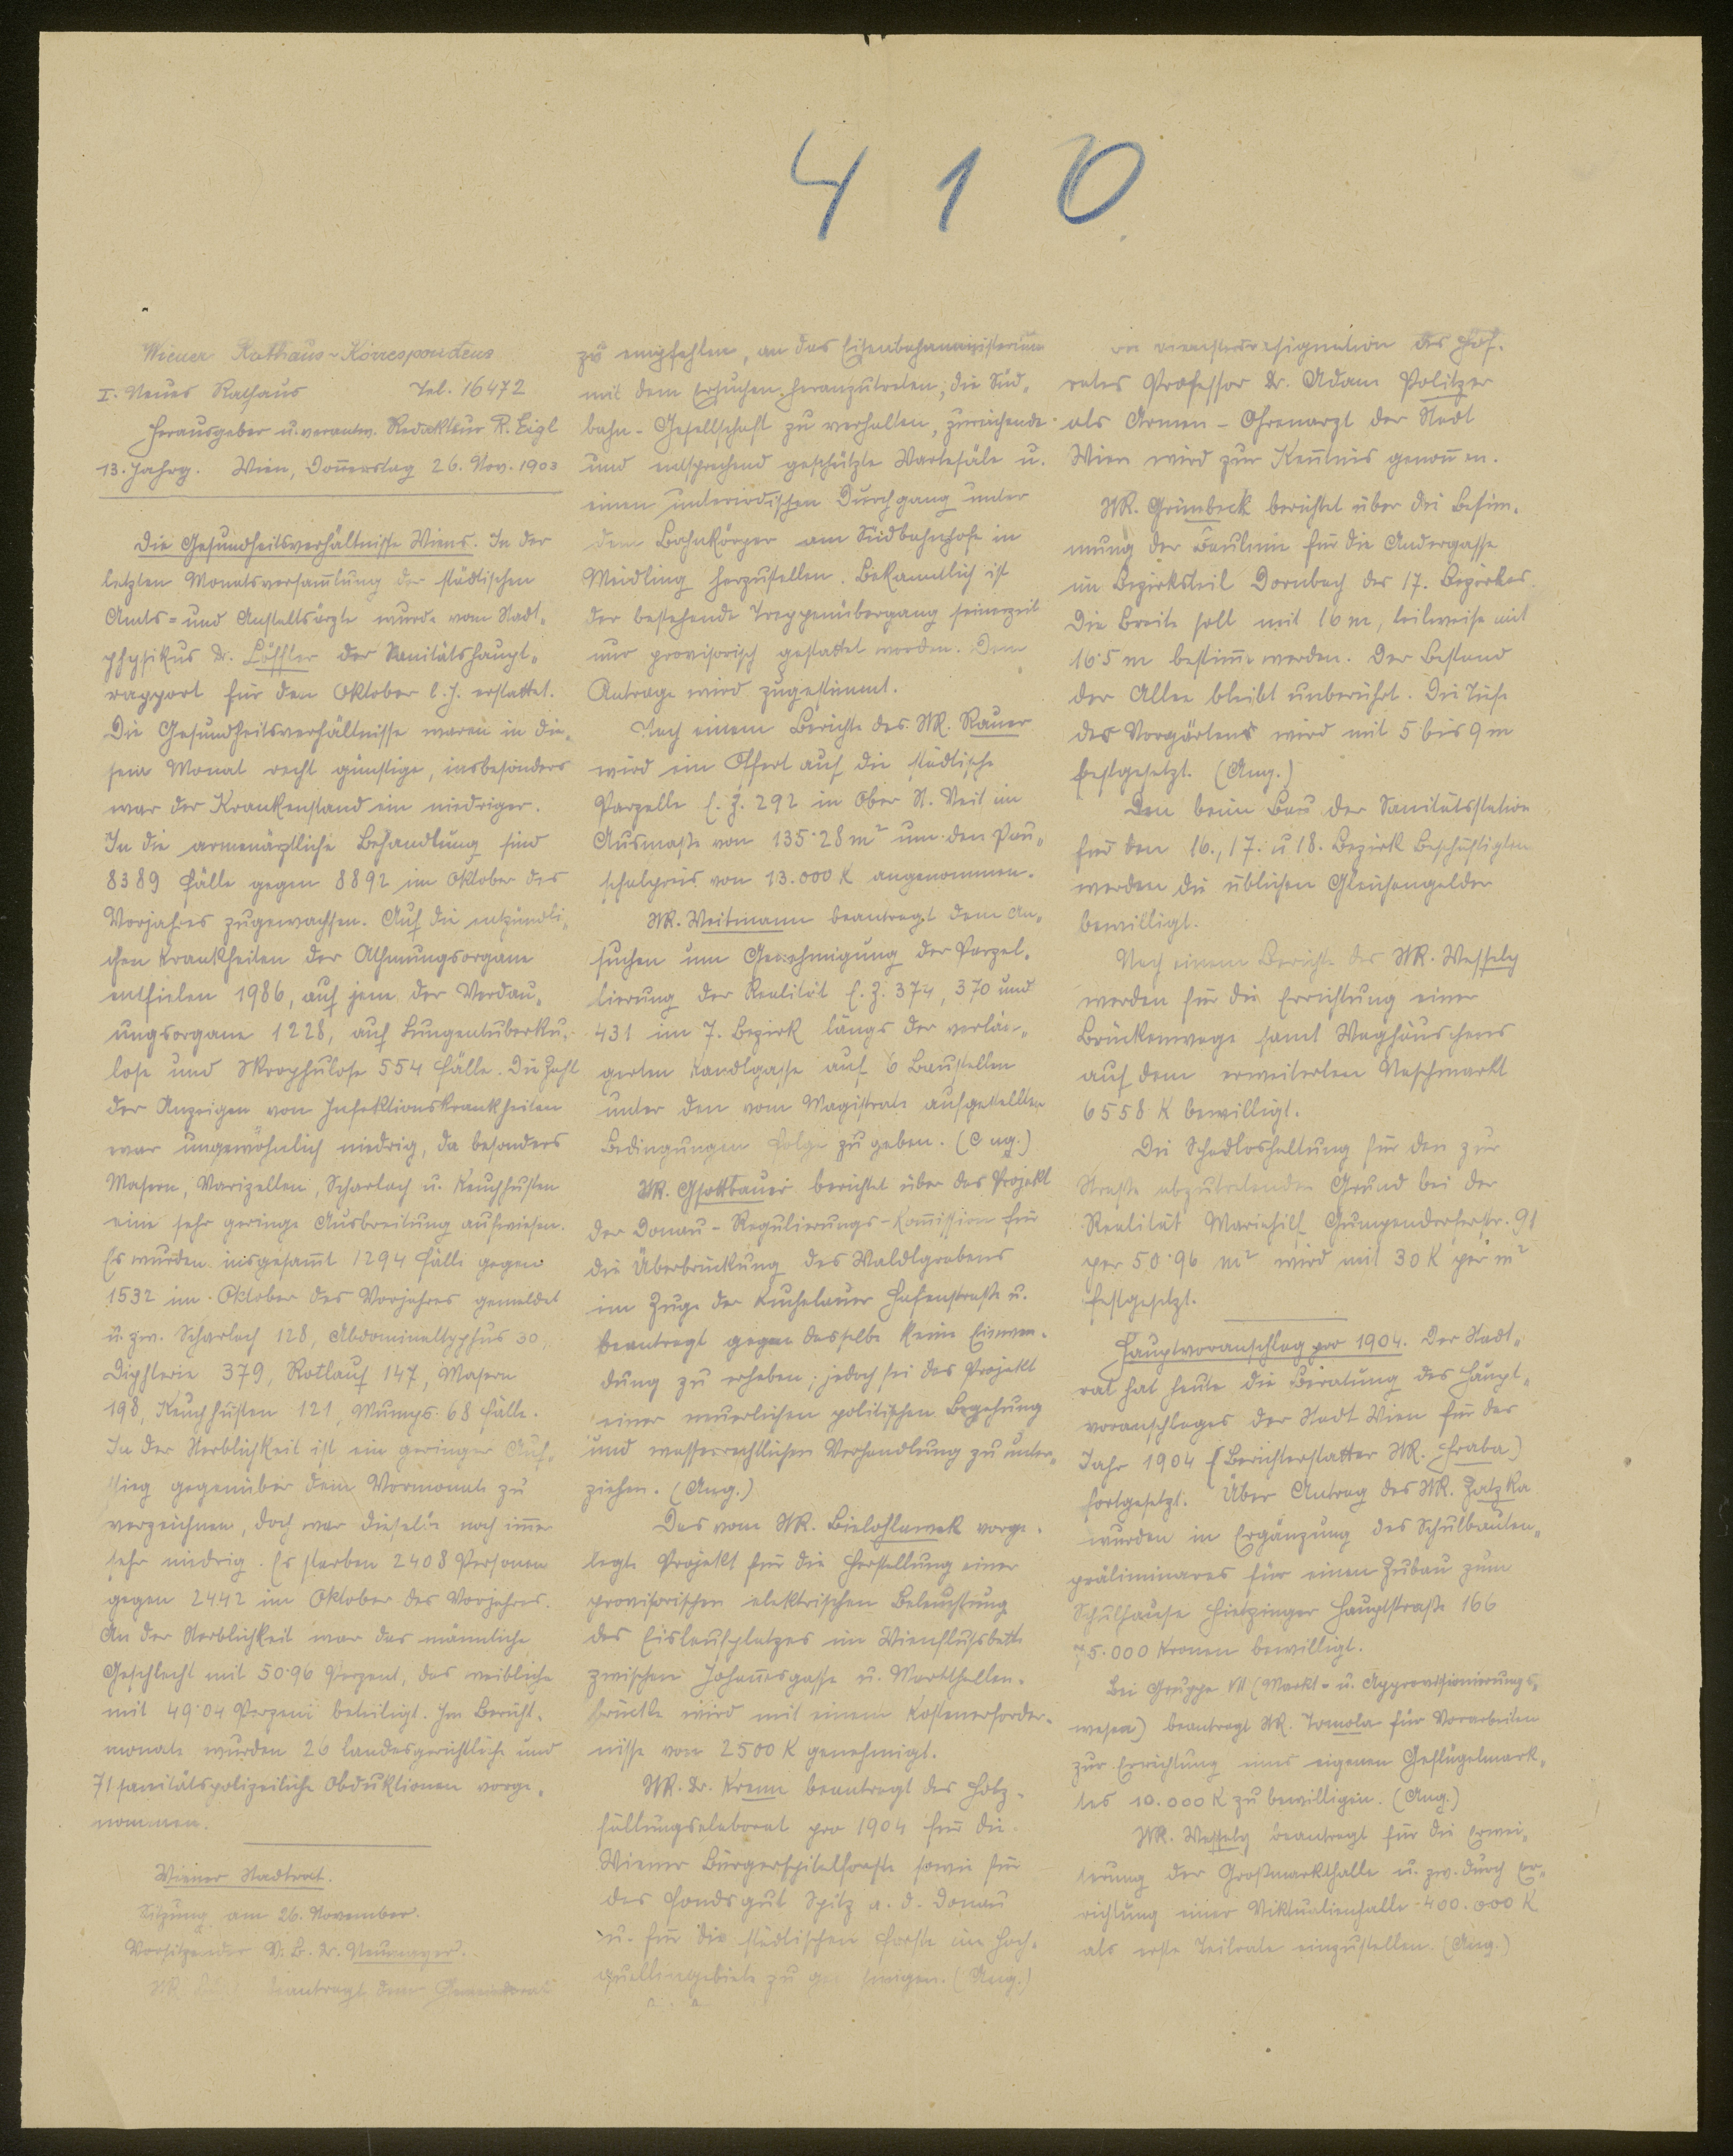 410
Wiener Rathaus-Korrespondenz
I. Neues Rathaus Tel. 16472
Herausgeber u. verantw. Redakteur R. Eigl
13. Jahrg. Wien, Don̄erstag 26. Nov. 1903
Die Gesundheitsverhältnisse Wiens. In der
letzten Monatsversam̄lung der städtischen
Amts= und Anstaltsärzte wurde vom Stadt„
physikus Dr. Löffler der Sanitätshaupt„
rapport für den Oktober l. J. erstattet.
Die Gesundheitsverhältnisse waren in die„
sem Monat recht günstige, insbesonders
war der Krankenstand ein niedriger.
In die armenärztliche Behandlung sind
8389 Fälle gegen 8892 im Oktober des
Vorjahres zugewachsen. Auf die entzündli„
chen Krankheiten der Athmungsorgane
entfielen 1986, auf jene der Verdau„
ungsorgane 1228, auf Lungentuberku„
lose und Skrophulose 554 Fälle. Die Zahl
der Anzeigen von Infektionskrankheiten
war ungewöhnlich niedrig, da besonders
Masern, Varizellen, Scharlach u. Keuchhusten
eine sehr geringe Ausbreitung aufwiesen.
Es wurden insgesam̄t 1294 Fälle gegen
1532 im Oktober des Vorjahres gemeldet
u. zw. Scharlach 128, Abdominaltyphus 30,
Diphterie 379, Rotlauf 147, Masern
198, Keuchhusten 121, Mumps 68 Fälle.
In der Sterblichkeit ist ein geringer Auf„
stieg gegenüber dem Vormonate zu
verzeichnen, doch war dieselbe noch im̄er
sehr niedrig. Es starben 2408 Personen
gegen 2442 im Oktober des Vorjahres.
An der Sterblichkeit war das männliche
Geschlecht mit 50·96 Perzent, das weibliche
mit 49·04 Perzent beteiligt. Im Bericht„
monate wurden 26 landesgerichtliche und
71 sanitätspolizeiliche Obduktionen vorge„
nommen.
Wiener Stadtrat.
Sitzung am 26. November.
Vorsitzender V. B. Dr. Neumayer.
StR. beantragt dem Gemeinderat
zu empfehlen, an das Eisenbahnministerium
mit dem Ersuchen heranzutreten, die Süd„
bahn-Gesellschaft zu verhalten, zureichende
und entsprechend geschützte Wartesäle u.
einen unterirdischen Durchgang unter
dem Bahnkörper am Südbahnhofe in
Meidling herzustellen. Bekanntlich ist
der bestehende Treppenübergang seinerzeit
nur provisorisch gestattet worden. Dem
Antrage wird zugestimmt.
Nach einem Berichte des StR. Rauer
wird ein Offert auf die städtische
Parzelle E. Z. 292 in Ober St. Veit im
Ausmaße von 135·28 m² um den Pau„
schalpreis von 13.000 K angenommen.
StR. Weitmann beantragt dem An„
suchen um Genehmigung der Parzel„
lierung der Realität E. Z. 374, 370 und
431 im 7. Bezirk längs der verlän„
gerten Kandlgasse auf 6 Baustellen
unter den vom Magistrate aufgestellten
Bedingungen Folge zu geben. (Ang.)
StR. Gsottbauer berichtet über das Projekt
der Donau-Regulierungs-Kom̄ission für
die Überbrückung des Waldlgrabens
im Zuge der Kuchelauer Hafenstraße u.
beantragt gegen dasselbe keine Einwen„
dung zu erheben; jedoch sei das Projekt
einer neuerlichen politischen Begehung
und wasserrechtlichen Verhandlung zu unter„
ziehen. (Ang.)
Das vom StR. Bielohlawek vorge„
legte Projekt für die Herstellung einer
provisorischen elektrischen Beleuchtung
des Eislaufplatzes im Wienflußbette
zwischen Johan̄esgasse u. Markthallen„
brücke wird mit einem Kostenerforder„
nisse von 2500 K genehmigt.
StR. Dr. Krenn beantragt das Holz„
fällungselaborat pro 1904 für die
Wiener Bürgerspitalforste sowie für
das Fondsgut Spitz a. d. Donau
u. für die städtischen Forste im Hoch„
quellengebiete zu genehmigen. (Ang.)
resignation des Hof„
rates Professor Dr. Adam Politzer
als Armen-Ohrenarzt der Stadt
Wien wird zur Ken̄tnis genom̄en.
StR. Grünbeck berichtet über die Bestim„
mung der Baulinie für die Andergasse
im Bezirksteil Dornbach des 17. Bezirkes.
Die Breite soll mit 16 m, teilweise mit
16·5 m bestim̄t werden. Der Bestand
der Allee bleibt unberührt. Die Tiefe
des Vorgartens wird mit 5 bis 9 m
festgesetzt. (Ang.)
Den beim Bau der Sanitätsstation
für den 16., 17. u 18. Bezirk Beschäftigten
werden die üblichen Gleichengelder
bewilligt.
Nach einem Berichte des StR. Wessely
werden für die Errichtung einer
Brückenwage samt Waghäuschens
auf dem erweiterten Naschmarkt
6558 K bewilligt.
Die Schadloshaltung für den zur
Straße abzutretenden Grund bei der
Realität Mariahilf Gumpendorferstr. 91
per 50·96 m² wird mit 30 K per m²
festgesetzt.
Hauptvoranschlag pro 1904. Der Stadt„
rat hat heute die Beratung des Haupt„
voranschlages der Stadt Wien für das
Jahr 1904 (Berichterstatter StR. Hraba)
fortgesetzt. Über Antrag des StR. Zatzka
wurden in Ergänzung des Schulbauten„
präliminares für einen Zubau zum
Schulhause Hietzinger Hauptstraße 166
75.000 Kronen bewilligt.
Bei Gruppe VII (Markt= u. Approvisionierungs„
wesen) beantragt StR. Tomola für Vorarbeiten
zur Errichtung eines eigenen Geflügelmark„
tes 10.000 K zu bewilligen. (Ang.)
StR. Wessely beantragt für die Erwei„
terung der Großmarkthalle u. zw. durch Er„
richtung einer Viktualienhalle 400.000 K
als erste Teilrate einzustellen. (Ang.)